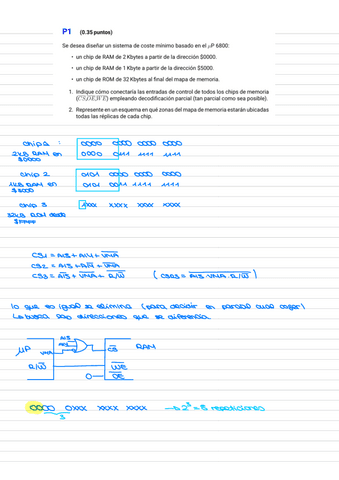 P1 (0.35 puntos)
Se desea diseñar un sistema de coste mínimo basado en el μP 6800:
• un chip de RAM de 2 Kbytes a partir de la dirección $0000.
• un chip de RAM de 1 Kbyte a partir de la dirección $5000.
• un chip de ROM de 32 Kbytes al final del mapa de memoria.
1. Indique cómo conectaría las entradas de control de todos los chips de memoria
(CS,OE,WE) empleando decodificación parcial (tan parcial como sea posible).
2. Represente en qué zonas del mapa de memoria estarán ubicadas
todas las réplicas de cada chip.
chip 1 : 0000 0000 0000 0000
2KB RAM en 0000 0111 1111 1111
$0000
chip 2 0101 0000 0000 0000
1KB RAM en 0101 0011 1111 1111
$5000
chip 3 1xxx xxxx xxxx xxxx
32KB ROM desde
CS1 = A15 + A14 + VMA
CS2 = A15 + A14 + VMA
CS3 = A15 + VMA + R/W (CS3 = A15 · VMA · R/W)
lo que es igual se elimina (para decidir en parcial cual coger)
Lo busca son direcciones que se diferencia
A15
A14
μP VMA CS RAM
R/W WE
0 OE
0000 0xxx xxxx xxxx → 2³ = 8 repeticiones
3